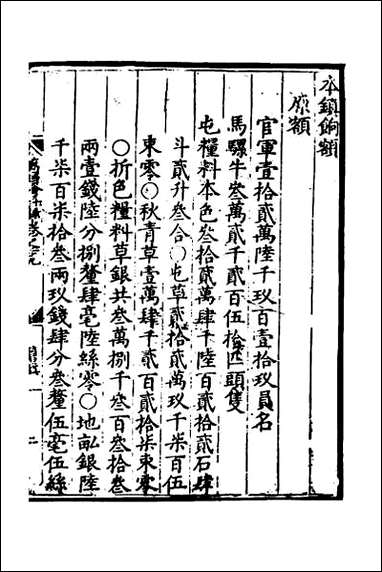 本鎮餉額
原額
官軍壹拾貳萬陸千玖百壹拾玖員名
馬騾牛叁萬貳千貳百伍拾匹頭隻
屯糧料本色叁拾貳萬肆千陸百貳拾石肆
斗貳升叁合○屯草貳拾貳萬玖千柒百伍
束零○秋青草壹萬肆千貳百貳拾柒束零
○折色糧料草銀共叁萬捌千叁百叁拾叁
兩壹錢陸分捌釐肆毫陸絲零○地畝銀陸
千柒百柒拾叁兩玖錢肆分叁釐伍毫伍絲
二